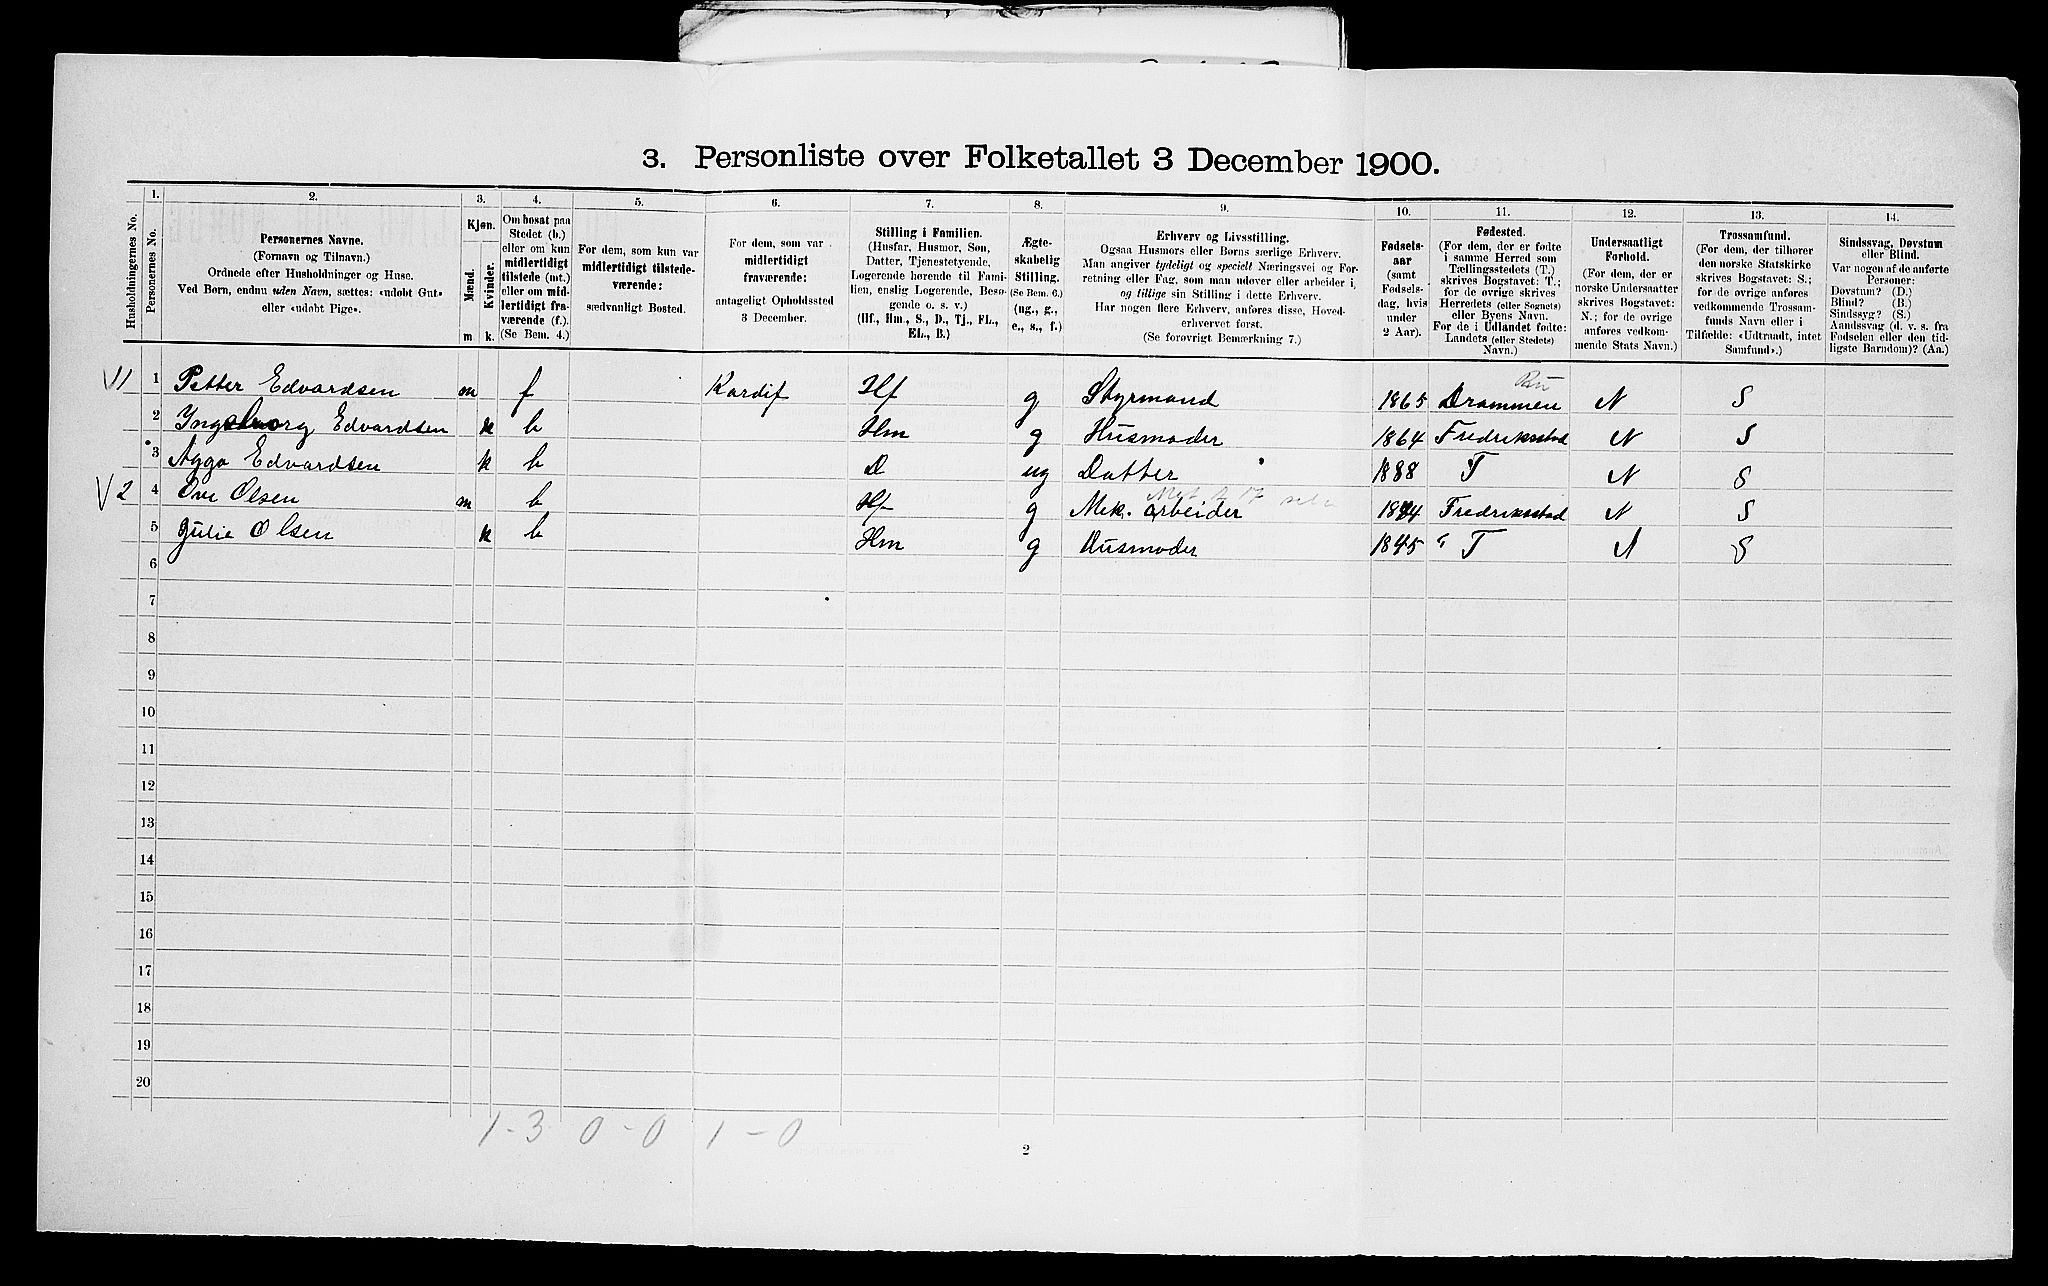 3. Personliste over Folketallet 3 December 1900.
1. 2. 3. 4. 5. 6. 7. 8. 9. 10. 11. 12. 13. 14.
Husholdningernes No.
Personernes No.
Personernes Navne.
(Fornavn og Tilnavn.)
Ordnede efter Husholdninger og Huse.
Ved Børn, endnu uden Navn, sættes: «udøbt Gut»
eller «udøbt Pige».
Kjøn.
Mænd.
Kvinder.
m. k.
Om bosat paa
Stedet (b.)
eller om kun
midlertidigt
tilstede (mt.)
eller om mid-
lertidigt fra-
værende (f.).
(Se Bem. 4.)
For dem, som kun var
midlertidigt tilstede-
værende:
sædvanligt Bosted.
For dem, som var
midlertidigt
fraværende:
antageligt Opholdssted
3 December.
Stilling i Familien.
(Husfar, Husmor, Søn,
Datter, Tjenestetyende,
Logerende hørende til Fami-
lien, enslig Logerende, Besø-
gende o. s. v.)
(Hf., Hm., S., D., Tj., FL.,
EL., B.)
Ægte-
skabelig
Stilling.
(Se Bem. 6.)
(ug., g.,
e., s., f.)
Erhverv og Livsstilling.
Ogsaa Husmors eller Børns særlige Erhverv.
Man angiver tydeligt og specielt Næringsvei og For-
retning eller Fag, som man udøver eller arbeider i,
og tillige sin Stilling i dette Erhverv.
Har nogen flere Erhverv, anføres disse, Hoved-
erhvervet først.
(Se forøvrigt Bemærkning 7.)
Fødsels-
aar
(samt
Fødsels-
dag, hvis
under
2 Aar).
Fødested.
(For dem, der er fødte
i samme Herred som
Tællingsstedets (T.)
skrives Bogstavet: T.;
for de øvrige skrives
Herredets (eller Sognets)
eller Byens Navn.
For de i Udlandet fødte:
Landets (eller Stedets)
Navn.)
Undersaatligt
Forhold.
(For dem, der er
norske Undersaatter
skrives Bogstavet:
N.; for de øvrige
anføres vedkom-
mende Stats Navn.)
Trossamfund.
(For dem, der tilhører
den norske Statskirke
skrives Bogstavet: S.;
for de øvrige anføres
vedkommende Trossam-
funds Navn eller i
Tilfælde: «Udtraadt, intet
Samfund».)
Sindssvag, Døvstum
eller Blind.
Var nogen af de anførte
Personer:
Døvstum? (D.)
Blind? (B.)
Sindssyg? (S.)
Aandssvag (d. v. s. fra
Fødselen eller den tid-
ligste Barndom)? (Aa.)
1 1 Petter Edvardsen m f Kardif Hf g Styrmand 1865 Drammen N S
2 Ingeborg Edvardsen k b Hm g Husmoder 1864 Fredriksstad N S
3 Agga Edvardsen k b D ug Datter 1888 T N S
2 4 Ove Olsen m b Hf g Mek. arbeider Fredriksstad N S
5 Julie Olsen k b Hm g Husmoder 1845 T N S
6
7
8
9
10
11
12
13
14
15
16
17
18
19
20
1-3 0-0 1-0
2